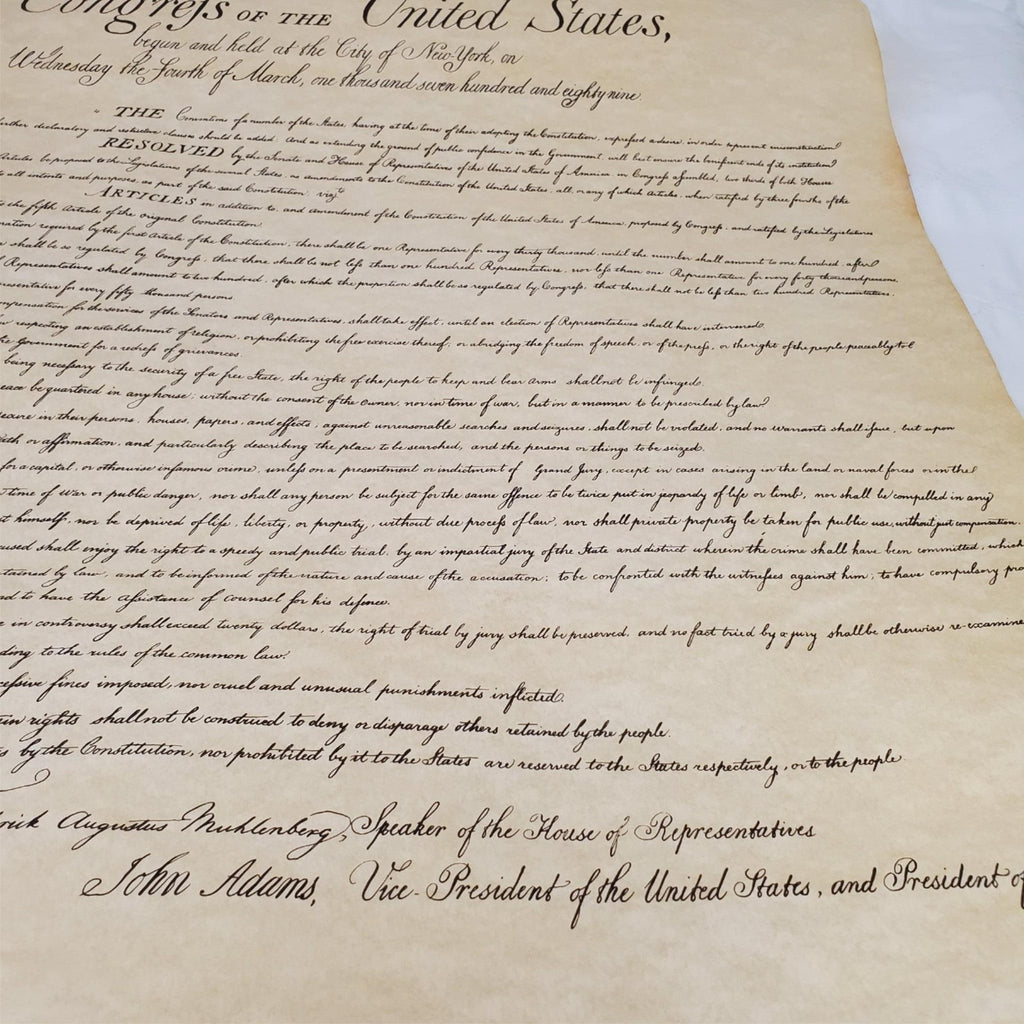 Congreſs OF THE United States,
begun and held at the City of New-York, on
Wednesday the Fourth of March, one thousand seven hundred and eighty nine.
THE Conventions of a number of the States, having at the time of their adopting the Constitution, expreſsed a desire, in order to prevent misconstruction
further declaratory and restrictive clauses should be added: And as extending the ground of public confidence in the Government, will best ensure the beneficent ends of its institution
RESOLVED by the Senate and House of Representatives of the United States of America in Congreſs aſsembled, two thirds of both Houses
Articles be proposed to the Legislatures of the several States, as amendments to the Constitution of the United States, all, or any of which Articles, when ratified by three fourths of the
to all intents and purposes, as part of the said Constitution vizt
ARTICLES in addition to, and amendment of the Constitution of the United States of America, proposed by Congreſs, and ratified by the Legislatures
to the fifth Article of the original Constitution
ration required by the first Article of the Constitution, there shall be one Representative for every thirty thousand, until the number shall amount to one hundred, after
shall be so regulated by Congreſs, that there shall be not leſs than one hundred Representatives, nor leſs than one Representative for every forty thousand persons,
Representatives shall amount to two hundred, after which the proportion shall be so regulated by Congreſs, that there shall not be leſs than two hundred Representatives,
resentative for every fifty thousand persons
mpensation for the services of the Senators and Representatives, shall take effect, until an election of Representatives shall have intervened.
respecting an establishment of religion, or prohibiting the free exercise thereof, or abridging the freedom of speech, or of the preſs, or the right of the people peaceably to
the Government for a redreſs of grievances.
being neceſsary to the security of a free State, the right of the people to keep and bear arms shall not be infringed.
eace be quartered in any house, without the consent of the owner, nor in time of war, but in a manner to be prescribed by law
secure in their persons, houses, papers, and effects, against unreasonable searches and seizures, shall not be violated, and no warrants shall iſsue, but upon
ath or affirmation, and particularly describing the place to be searched, and the persons or things to be seized.
for a capital, or otherwise infamous crime, unleſs on a presentment or indictment of Grand Jury, except in cases arising in the land or naval forces or in the
time of War or public danger, nor shall any person be subject for the same offence to be twice put in jeopardy of life or limb, nor shall be compelled in any
himself, nor be deprived of life, liberty, or property, without due proceſs of law, nor shall private property be taken for public use, without just compensation.
cused shall enjoy the right to a speedy and public trial, by an impartial jury of the State and district wherein the crime shall have been committed, which
tained by law, and to be informed of the nature and cause of the accusation; to be confronted with the witneſses against him; to have compulsory pro
nd to have the aſsistance of counsel for his defence.
in controversy shall exceed twenty dollars, the right of trial by jury shall be preserved, and no fact tried by a jury shall be otherwise re-examine
ding to the rules of the common law.
ceſsive fines imposed, nor cruel and unusual punishments inflicted.
ain rights shall not be construed to deny or disparage others retained by the people.
by the Constitution, nor prohibited by it to the States are reserved to the States respectively, or to the people
rick Augustus Muhlenberg, Speaker of the House of Representatives
John Adams, Vice-President of the United States, and President of